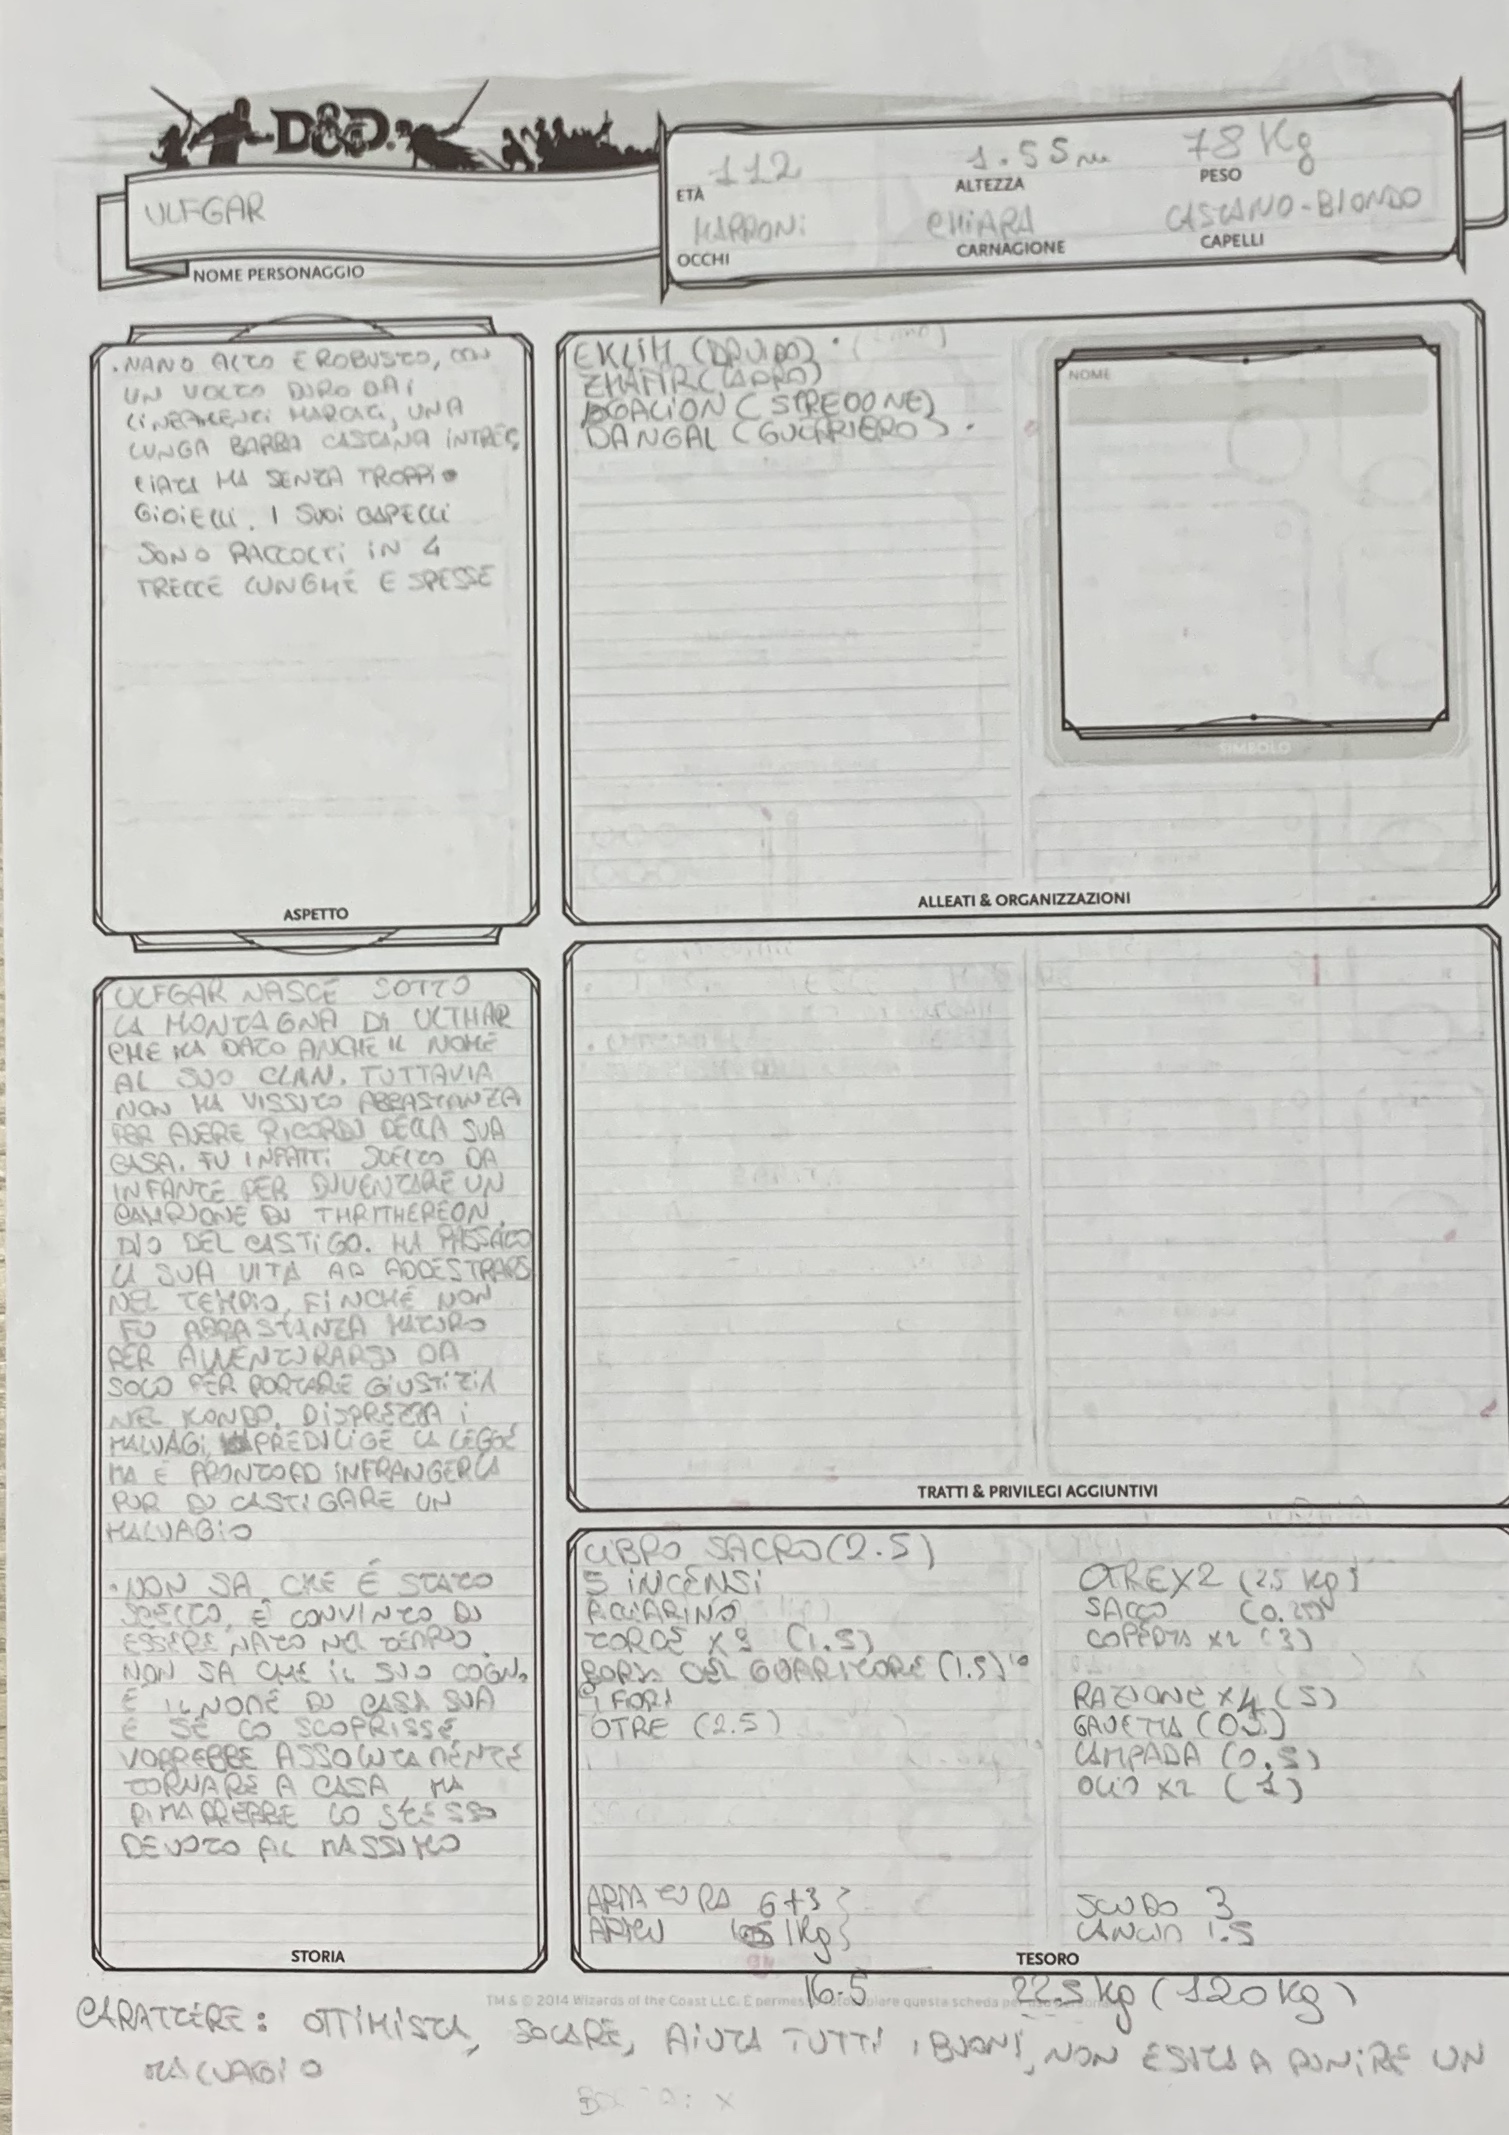 D&D
ULFGAR
NOME PERSONAGGIO
112
ETÀ
1.55m
ALTEZZA
78 Kg
PESO
MARRONI
OCCHI
CHIARA
CARNAGIONE
CASTANO-BIONDO
CAPELLI
• NANO ALTO E ROBUSTO, CON
UN VOLTO DURO DAI
LINEAMENTI MARCATI, UNA
LUNGA BARBA CASTANA INTREC
CIATA MA SENZA TROPPI
GIOIELLI. I SUOI CAPELLI
SONO RACCOLTI IN 4
TRECCE LUNGHE E SPESSE
ASPETTO
EKLIM (DRUIDO) •
(LADRO)
(STREGONE)
DANGAL (GUERRIERO) •
NOME
SIMBOLO
ALLEATI & ORGANIZZAZIONI
ULFGAR NASCE SOTTO
LA MONTAGNA DI ULTHAR
CHE HA DATO ANCHE IL NOME
AL SUO CLAN. TUTTAVIA
NON HA VISSUTO ABBASTANZA
PER AVERE RICORDI DELLA SUA
CASA. FU INFATTI SCELTO DA
INFANTE PER DIVENTARE UN
CAMPIONE DI THRITHEREON,
DIO DEL CASTIGO. HA PASSATO
LA SUA VITA AD ADDESTRARSI
NEL TEMPIO, FINCHÉ NON
FU ABBASTANZA MATURO
PER AVVENTURARSI DA
SOLO PER PORTARE GIUSTIZIA
NEL MONDO. DISPREZZA I
MALVAGI, PREDILIGE LA LEGGE
MA È PRONTO AD INFRANGERLA
PUR DI CASTIGARE UN
MALVAGIO
• NON SA CHE È STATO
SCELTO, È CONVINTO DI
ESSERE NATO NEL TEMPIO.
NON SA CHE IL SUO COGN.
È IL NOME DI CASA SUA
E SE LO SCOPRISSE
VORREBBE ASSOLUTAMENTE
TORNARE A CASA MA
RIMARREBBE LO STESSO
DEVOTO AL MASSIMO
STORIA
TRATTI & PRIVILEGI AGGIUNTIVI
LIBRO SACRO (2.5)
5 INCENSI
ACCIARINO
TORCE X 3 (1.5)
BORSA DEL GUARITORE (1.5) 10
OTRE (2.5)
OTRE X2 (2.5 Kg)
SACCO (0.25)
COPERTA X2 (3)
RAZIONE X4 (5)
GAVETTA (0.5)
LAMPADA (0.5)
OLIO X2 (1)
ARMATURA 6+3
1Kg
SCUDO 3
LANCIA 1.5
TESORO
16.5
22.5 Kg (120 Kg)
TM & © 2014 Wizards of the Coast LLC. È permesso fotocopiare questa scheda per uso personale.
CARATTERE: OTTIMISTA, SOLARE, AIUTA TUTTI I BUONI, NON ESITA A PUNIRE UN
MALVAGIO